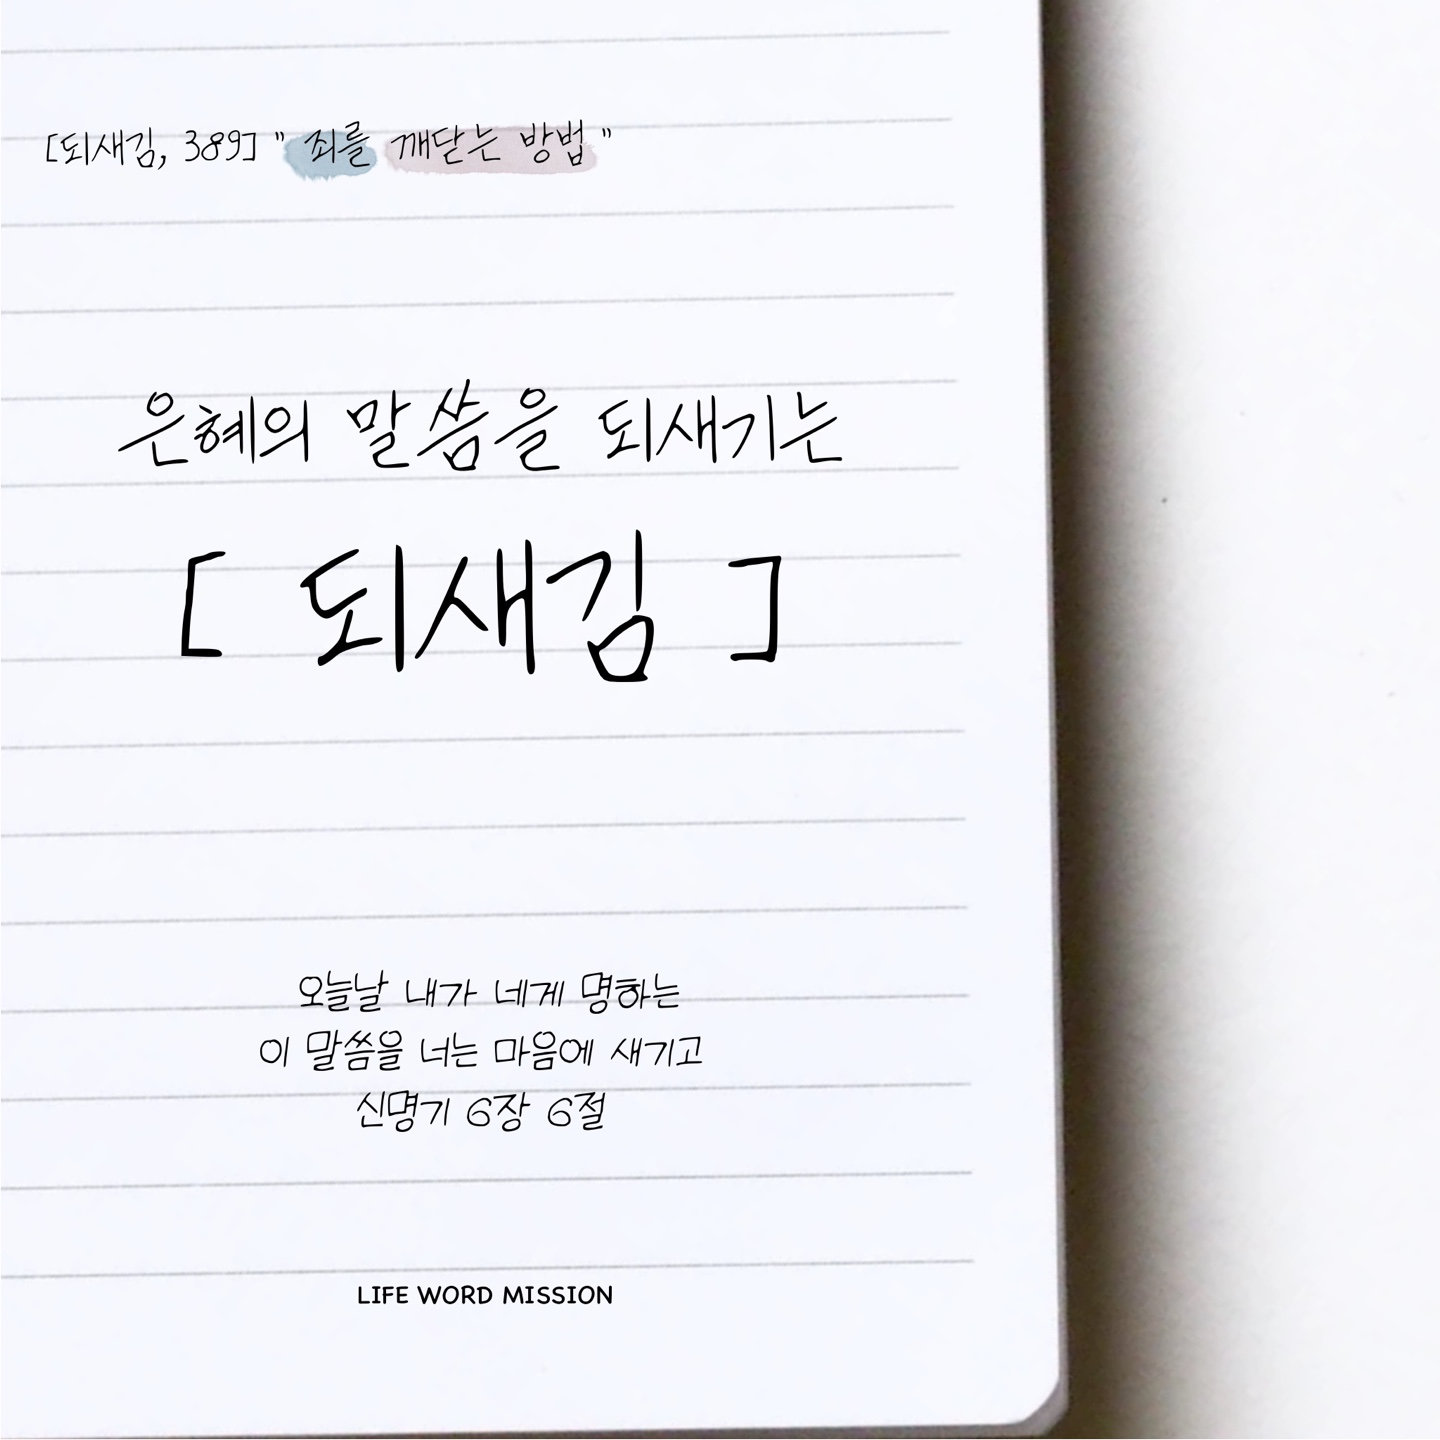 [되새김, 389] " 죄를 깨닫는 방법 "
은혜의 말씀을 되새기는
[ 되새김 ]
오늘날 내가 네게 명하는
이 말씀을 너는 마음에 새기고
신명기 6장 6절
LIFE WORD MISSION